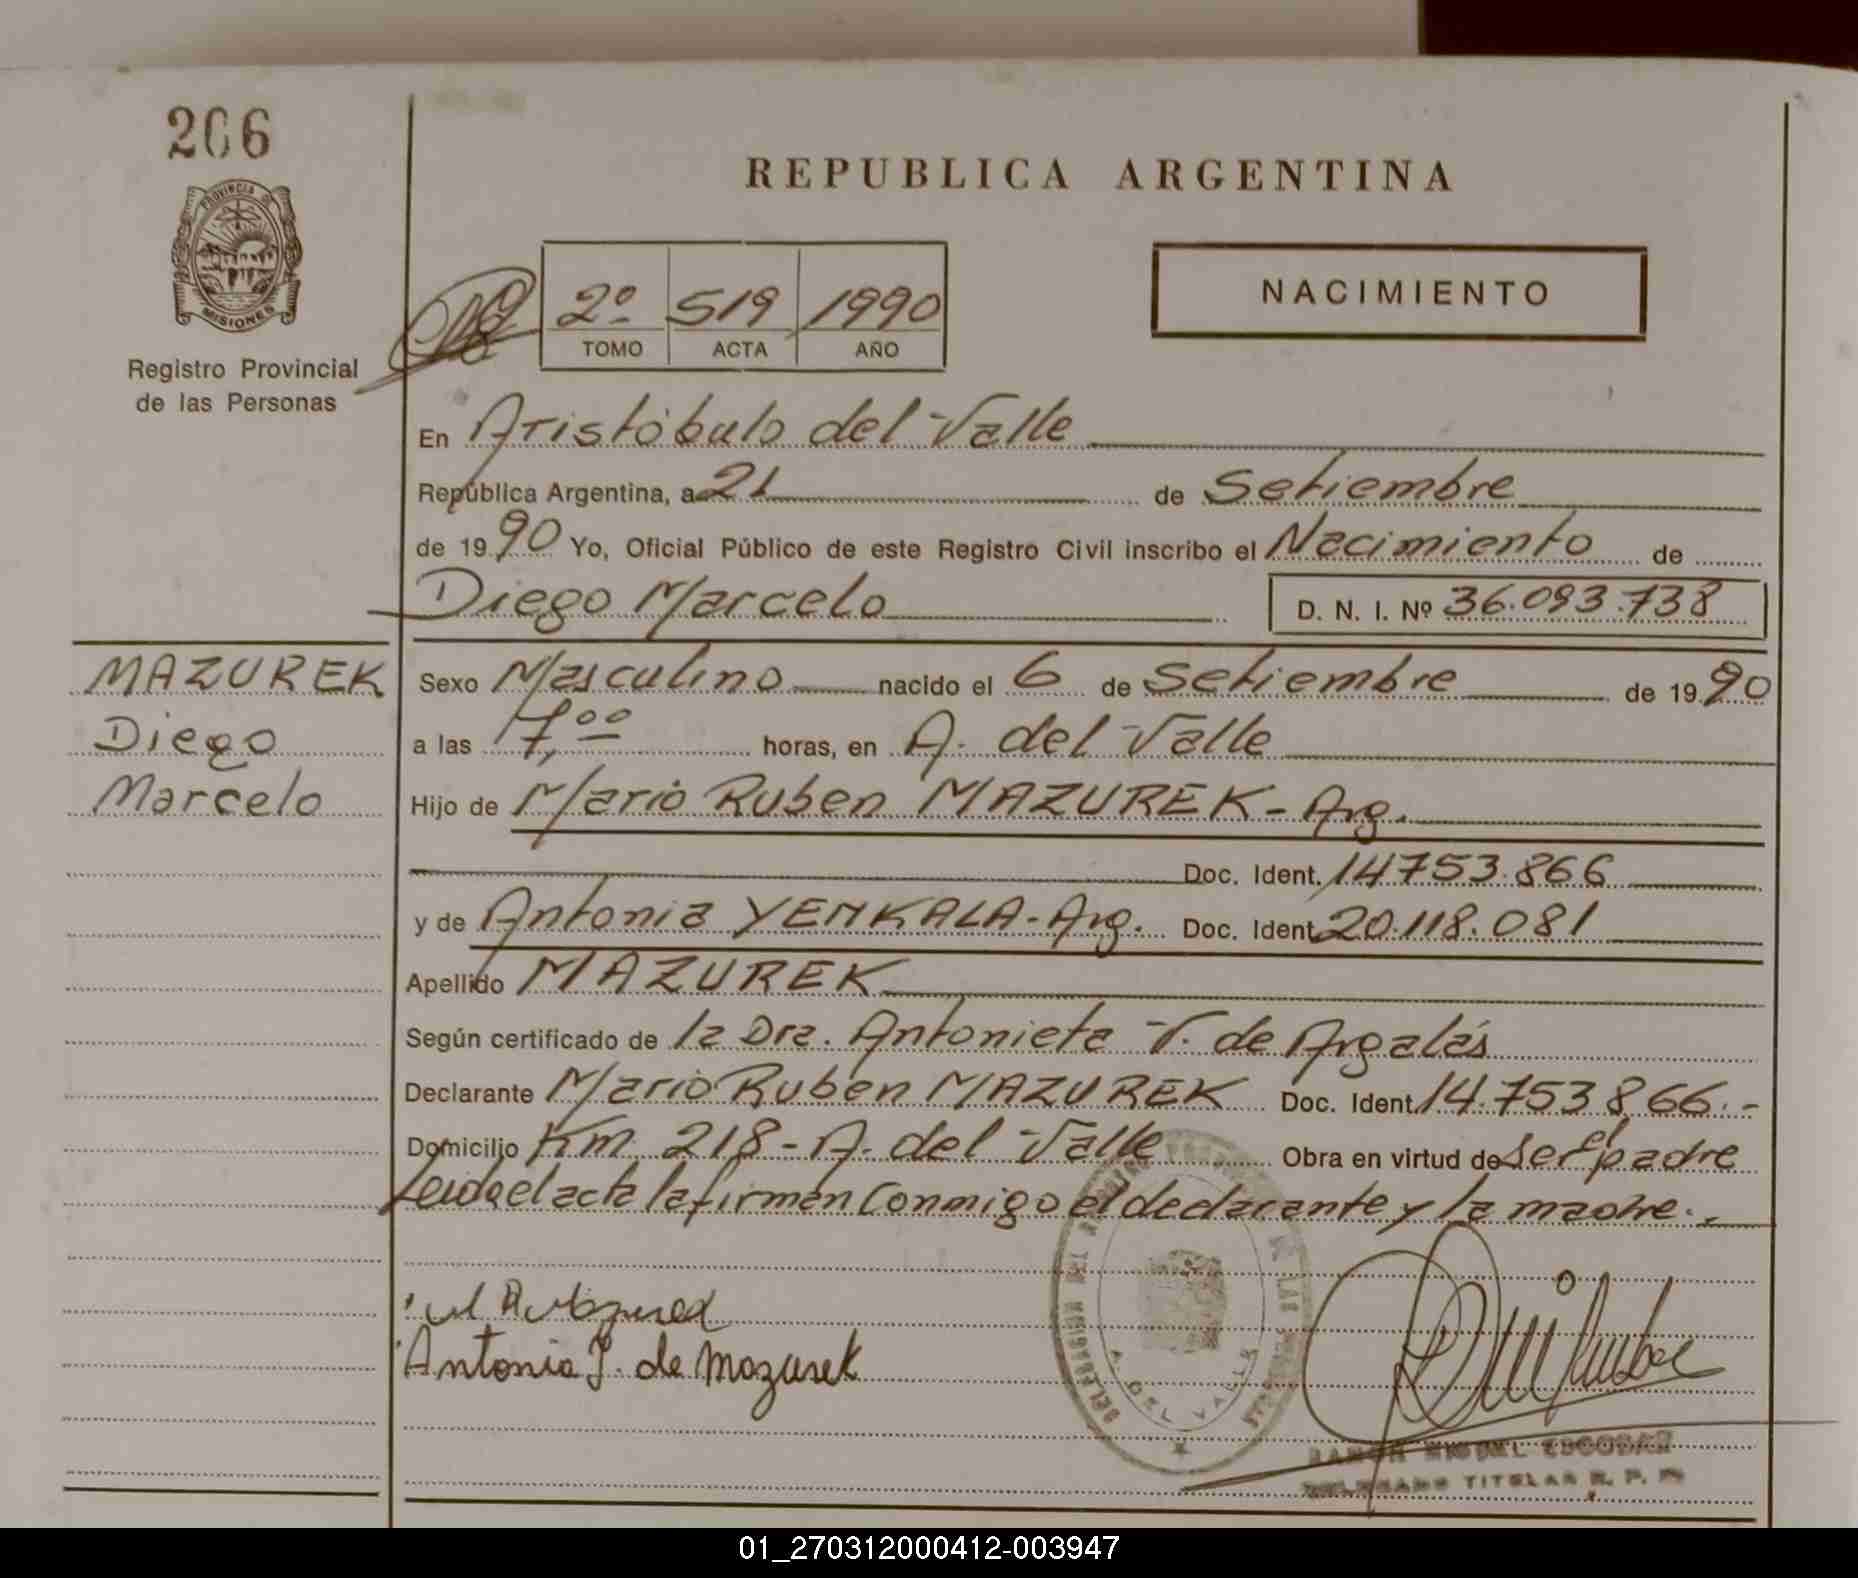 206
PROVINCIA DE
MISIONES
Registro Provincial
de las Personas
REPUBLICA ARGENTINA
2º 519 1990
TOMO ACTA AÑO
NACIMIENTO
En Aristóbulo del Valle
República Argentina, a 21 de Setiembre
de 1990 Yo, Oficial Público de este Registro Civil inscribo el Nacimiento de
Diego Marcelo D. N. I. Nº 36.093.738
MAZUREK
Diego
Marcelo
Sexo Masculino nacido el 6 de Setiembre de 1990
a las 7,00 horas, en A. del Valle
Hijo de Mario Ruben MAZUREK - Arg.
Doc. Ident. 14753.866
y de Antonia YENKALA - Arg. Doc. Ident. 20.118.081
Apellido MAZUREK
Según certificado de la Dra. Antonieta V. de Argalás
Declarante Mario Ruben MAZUREK Doc. Ident. 14.753.866.-
Domicilio Km. 218 - A. del Valle Obra en virtud de ser el padre
Leida el acta la firman conmigo el declarante y la madre.-
Antonia Y. de Mazurek
A. DEL VALLE
RAMON MIGUEL ESCOBAR
DELEGADO TITULAR R. P. P.
01_270312000412-003947